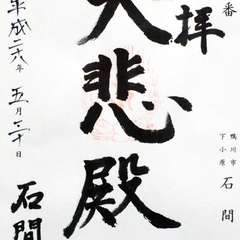 番
拝
鴨川市
下小原
石間
大悲殿
平成二六年五月二十日
石間